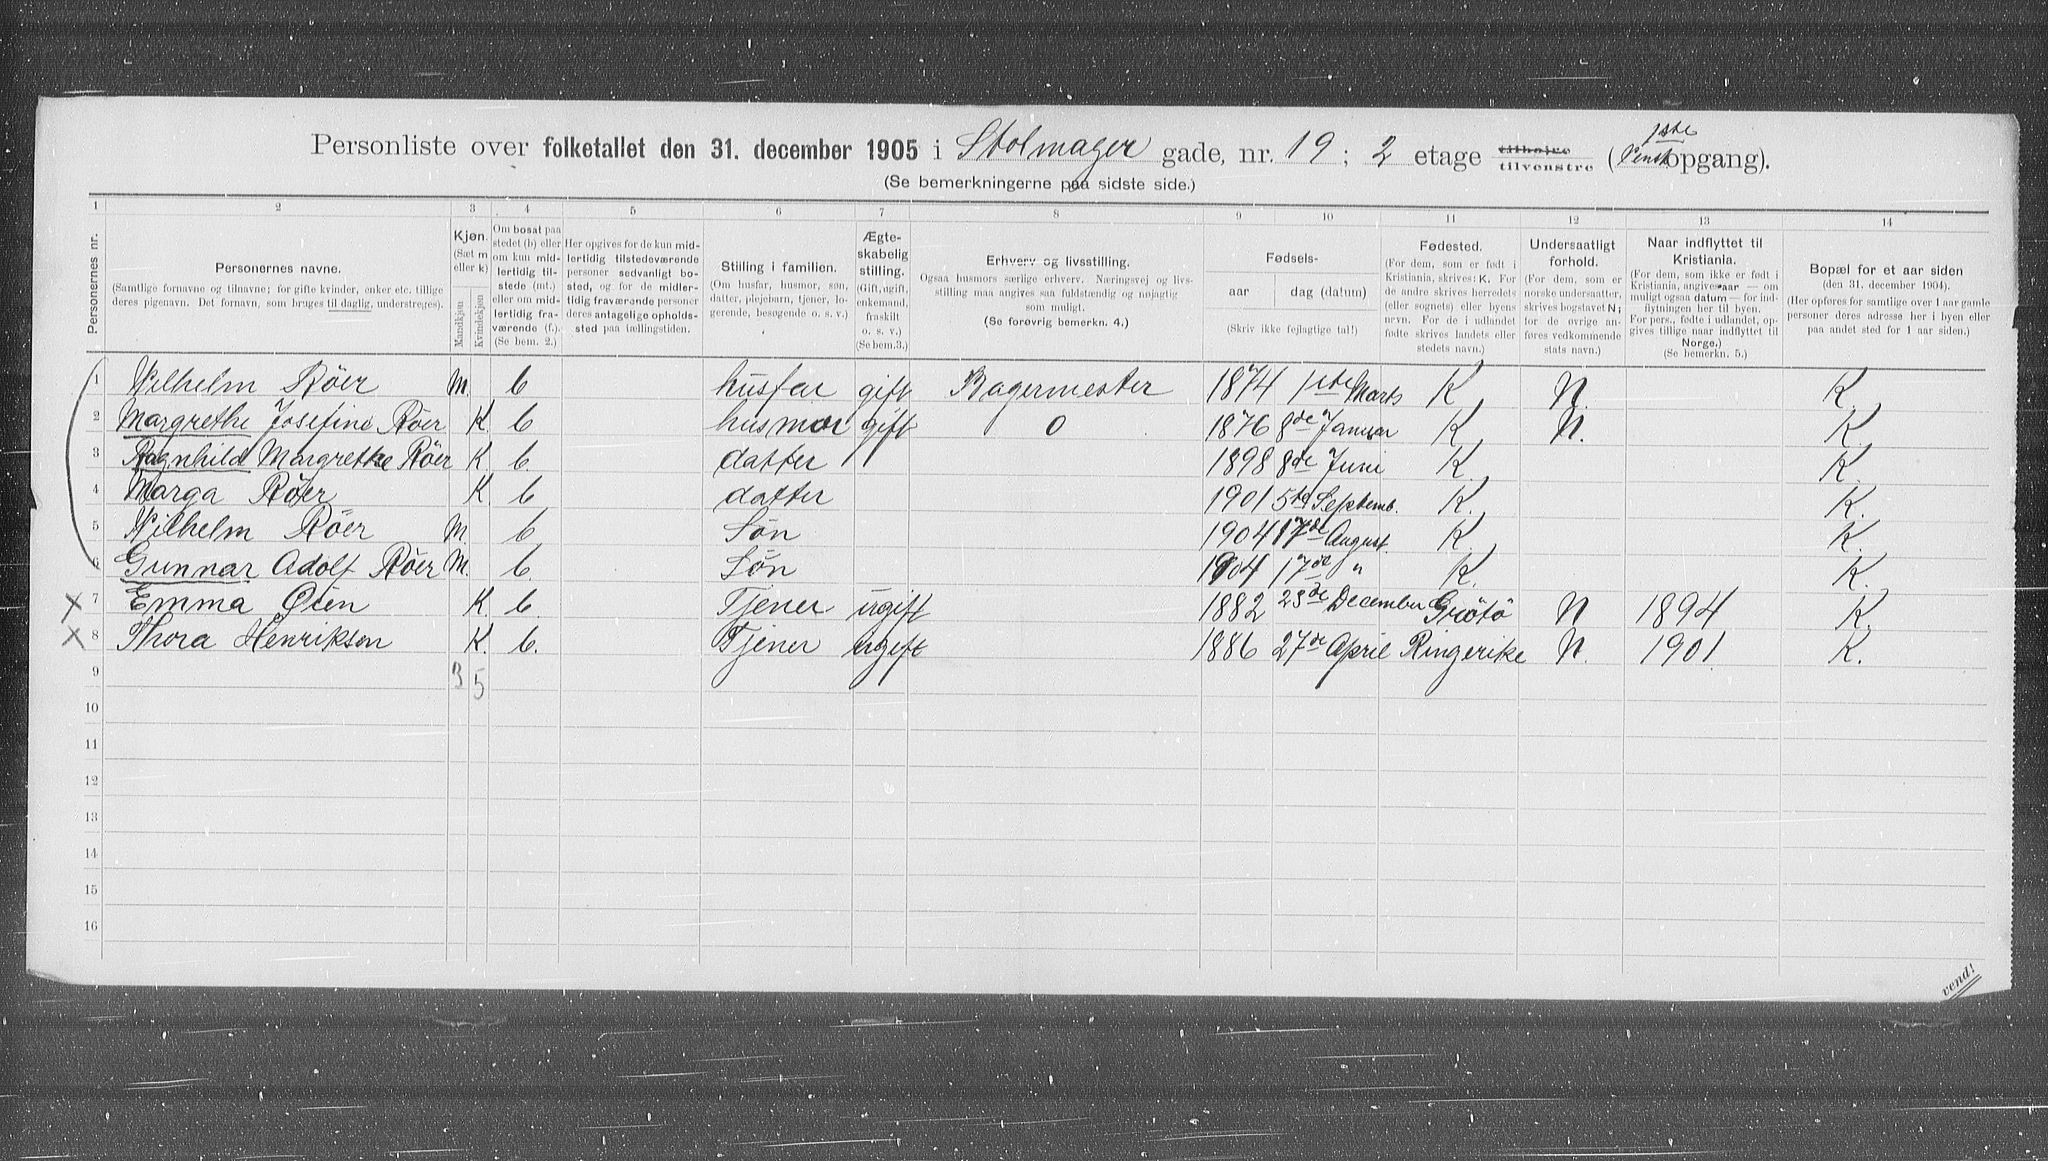 Personliste over folketallet den 31. december 1905 i Stolmager gade, nr. 19; 2 etage tilhøire tilvenstre (1ste opgang).
(Se bemerkningerne paa sidste side.)
1 2 3 4 5 6 7 8 9 10 11 12 13 14
Personernes nr.
Personernes navne.
(Samtlige fornavne og tilnavne; for gifte kvinder, enker etc. tillige deres pigenavn. Det fornavn, som bruges til daglig, understreges).
Kjøn.
(Sæt m eller k)
Mandkjøn
Kvindekjøn
Om bosat paa stedet (b) eller om kun midlertidig tilstede (mt.) eller om midlertidig fraværende (f.) (Se bem. 2.)
Her opgives for de kun midlertidig tilstedeværende personer sedvanligt bosted, og for de midlertidig fraværende personer deres antagelige opholdssted paa tællingstiden.
Stilling i familien.
(Om husfar, husmor, søn, datter, plejebarn, tjener, logerende, besøgende o. s. v.)
Ægteskabelig stilling.
(Gift, ugift, enkemand, fraskilt o. s. v.)
(Se bem. 3.)
Erhverv og livsstilling.
Ogsaa husmors særlige erhverv. Næringsvej og livsstilling maa angives saa fuldstændig og nøjagtig som muligt.
(Se forøvrig bemerkn. 4.)
Fødsels-
aar
dag (datum)
(Skriv ikke fejlagtige tal!)
Fødested.
(For dem, som er født i Kristiania, skrives: K. For de andre skrives herredets (eller sognets) eller byens navn. For de i udlandet fødte skrives landets eller stedets navn.)
Undersaatligt forhold.
(For dem, som er norske undersaatter, skrives bogstavet N; for de øvrige anføres vedkommende stats navn.)
Naar indflyttet til Kristiania.
(For dem, som ikke er født i Kristiania, angives aar — om muligt ogsaa datum — for indflytningen her til byen. For pers., fødte i udlandet, opgives tillige naar indflyttet til Norge.)
(Se bemerkn. 5.)
Bopæl for et aar siden
(den 31. december 1904).
(Her opføres for samtlige over 1 aar gamle personer deres adresse her i byen eller paa andet sted for 1 aar siden.)
1 Wilhelm Röer m. b husfar gift Bagermester 1874 1ste Marts K N. K.
2 Margrethe Josefine Röer K. b husmor gift 0 1876 8de Januar K N. K.
3 Ragnhild Margrethe Röer K. b. datter 1898 8de Juni K K.
4 Marga Röer K b datter 1901 5te Septemb. K. K.
5 Wilhelm Röer m. b Søn 1904 17de August. K. K.
6 Gunnar Adolf Röer m. b. Søn 1904 17de " K. K.
x 7 Emma Öien K. b Tjener ugift 1882 23de December N 1894 K.
x 8 Thora Henriksen K. b. Tjener ugift 1886 27de April Ringerike N. 1901. K.
9 3 5
10
11
12
13
14
15
16
vend!